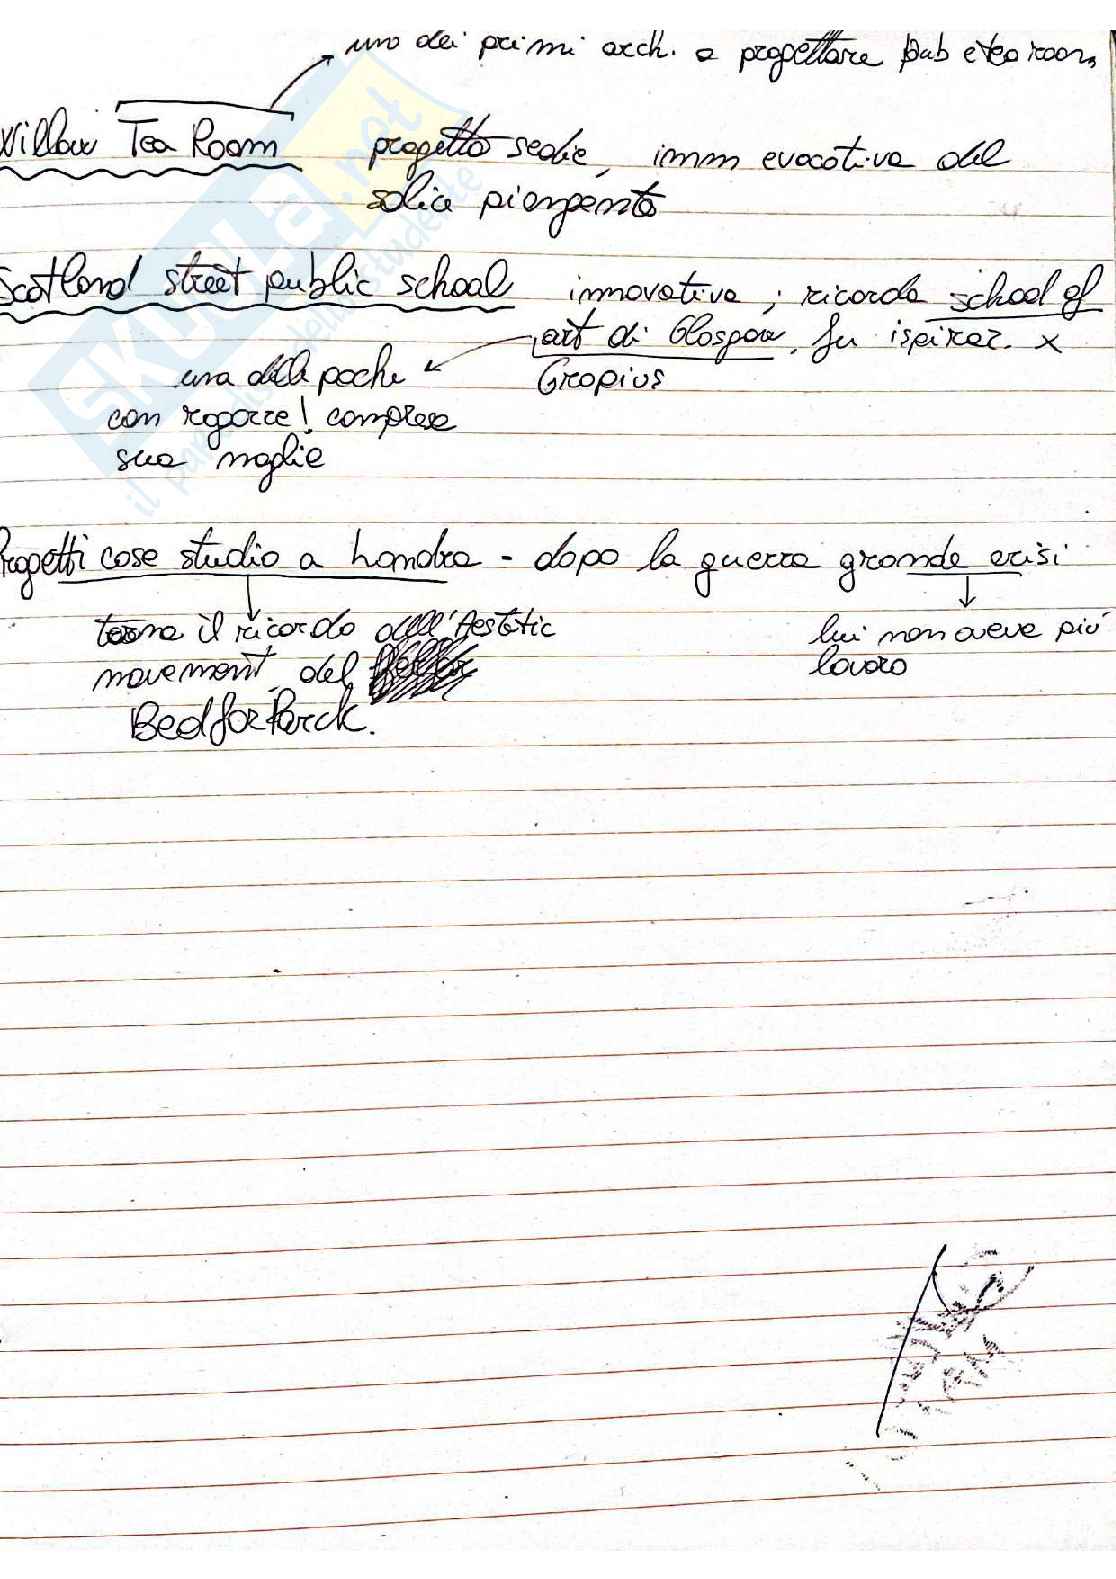 uno dei primi arch. a progettare pub e tea room
Willow Tea Room progetto sedie, imm evocativa del
salice piangente
Scotland street public school innovativa ; ricorda school of
art di Glasgow, fu ispiraz. x
Gropius
una delle poche
con ragazze! compresa
sua moglie
Progetti case studio a Londra - dopo la guerra grande crisi
torna il ricordo dell'Aestetic
movement, del
BedforParck.
lui non aveva più
lavoro
SKUOLA.net
il paradiso dello studente